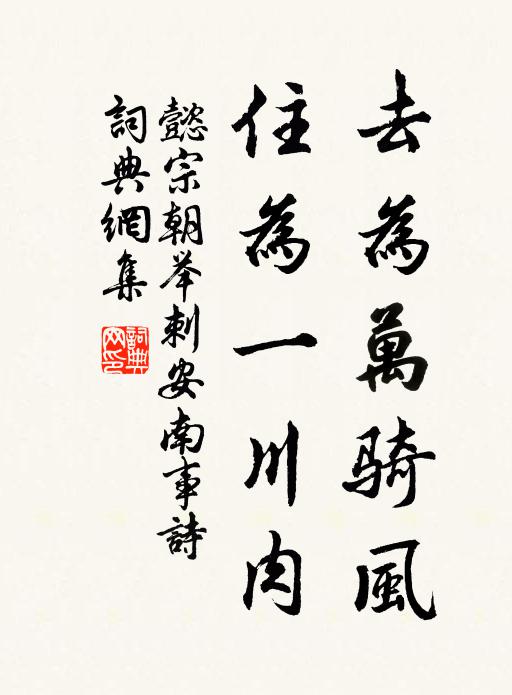 去為萬騎風
住為一川肉
懿宗朝举刺安南事詩
詞典網集
詞典網印